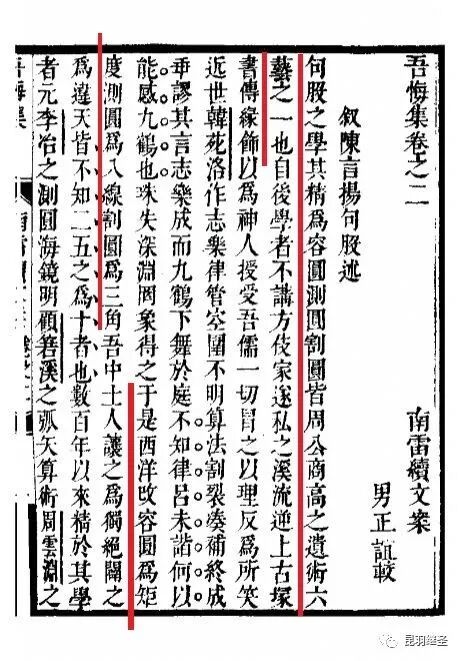 吾悔集卷之二
南雷續文案
男正誼較
叙陳言揚句股述
句股之學其精爲容圓測圓割圓皆周公商高之遺術六
藝之一也自後學者不講方伎家遂私之溪流逆上古塚
書傳緣飾以爲神人授受吾儒一切冒之以理反爲所笑
近世韓苑洛作志樂律管空圍不明算法割裂湊補終成
乖謬其言志樂成而九鶴下舞於庭不知律呂未諧何以
能感九鶴也珠失深淵罔象得之于是西洋改容圓爲矩
度測圓爲八線割圓爲三角吾中土人讓之爲獨絶闢之
爲違天皆不知二五之爲十者也數百年以來精於其學
者元李冶之測圓海鏡明顧箬溪之弧矢算術周雲淵之
吾悔集
昆羽继圣